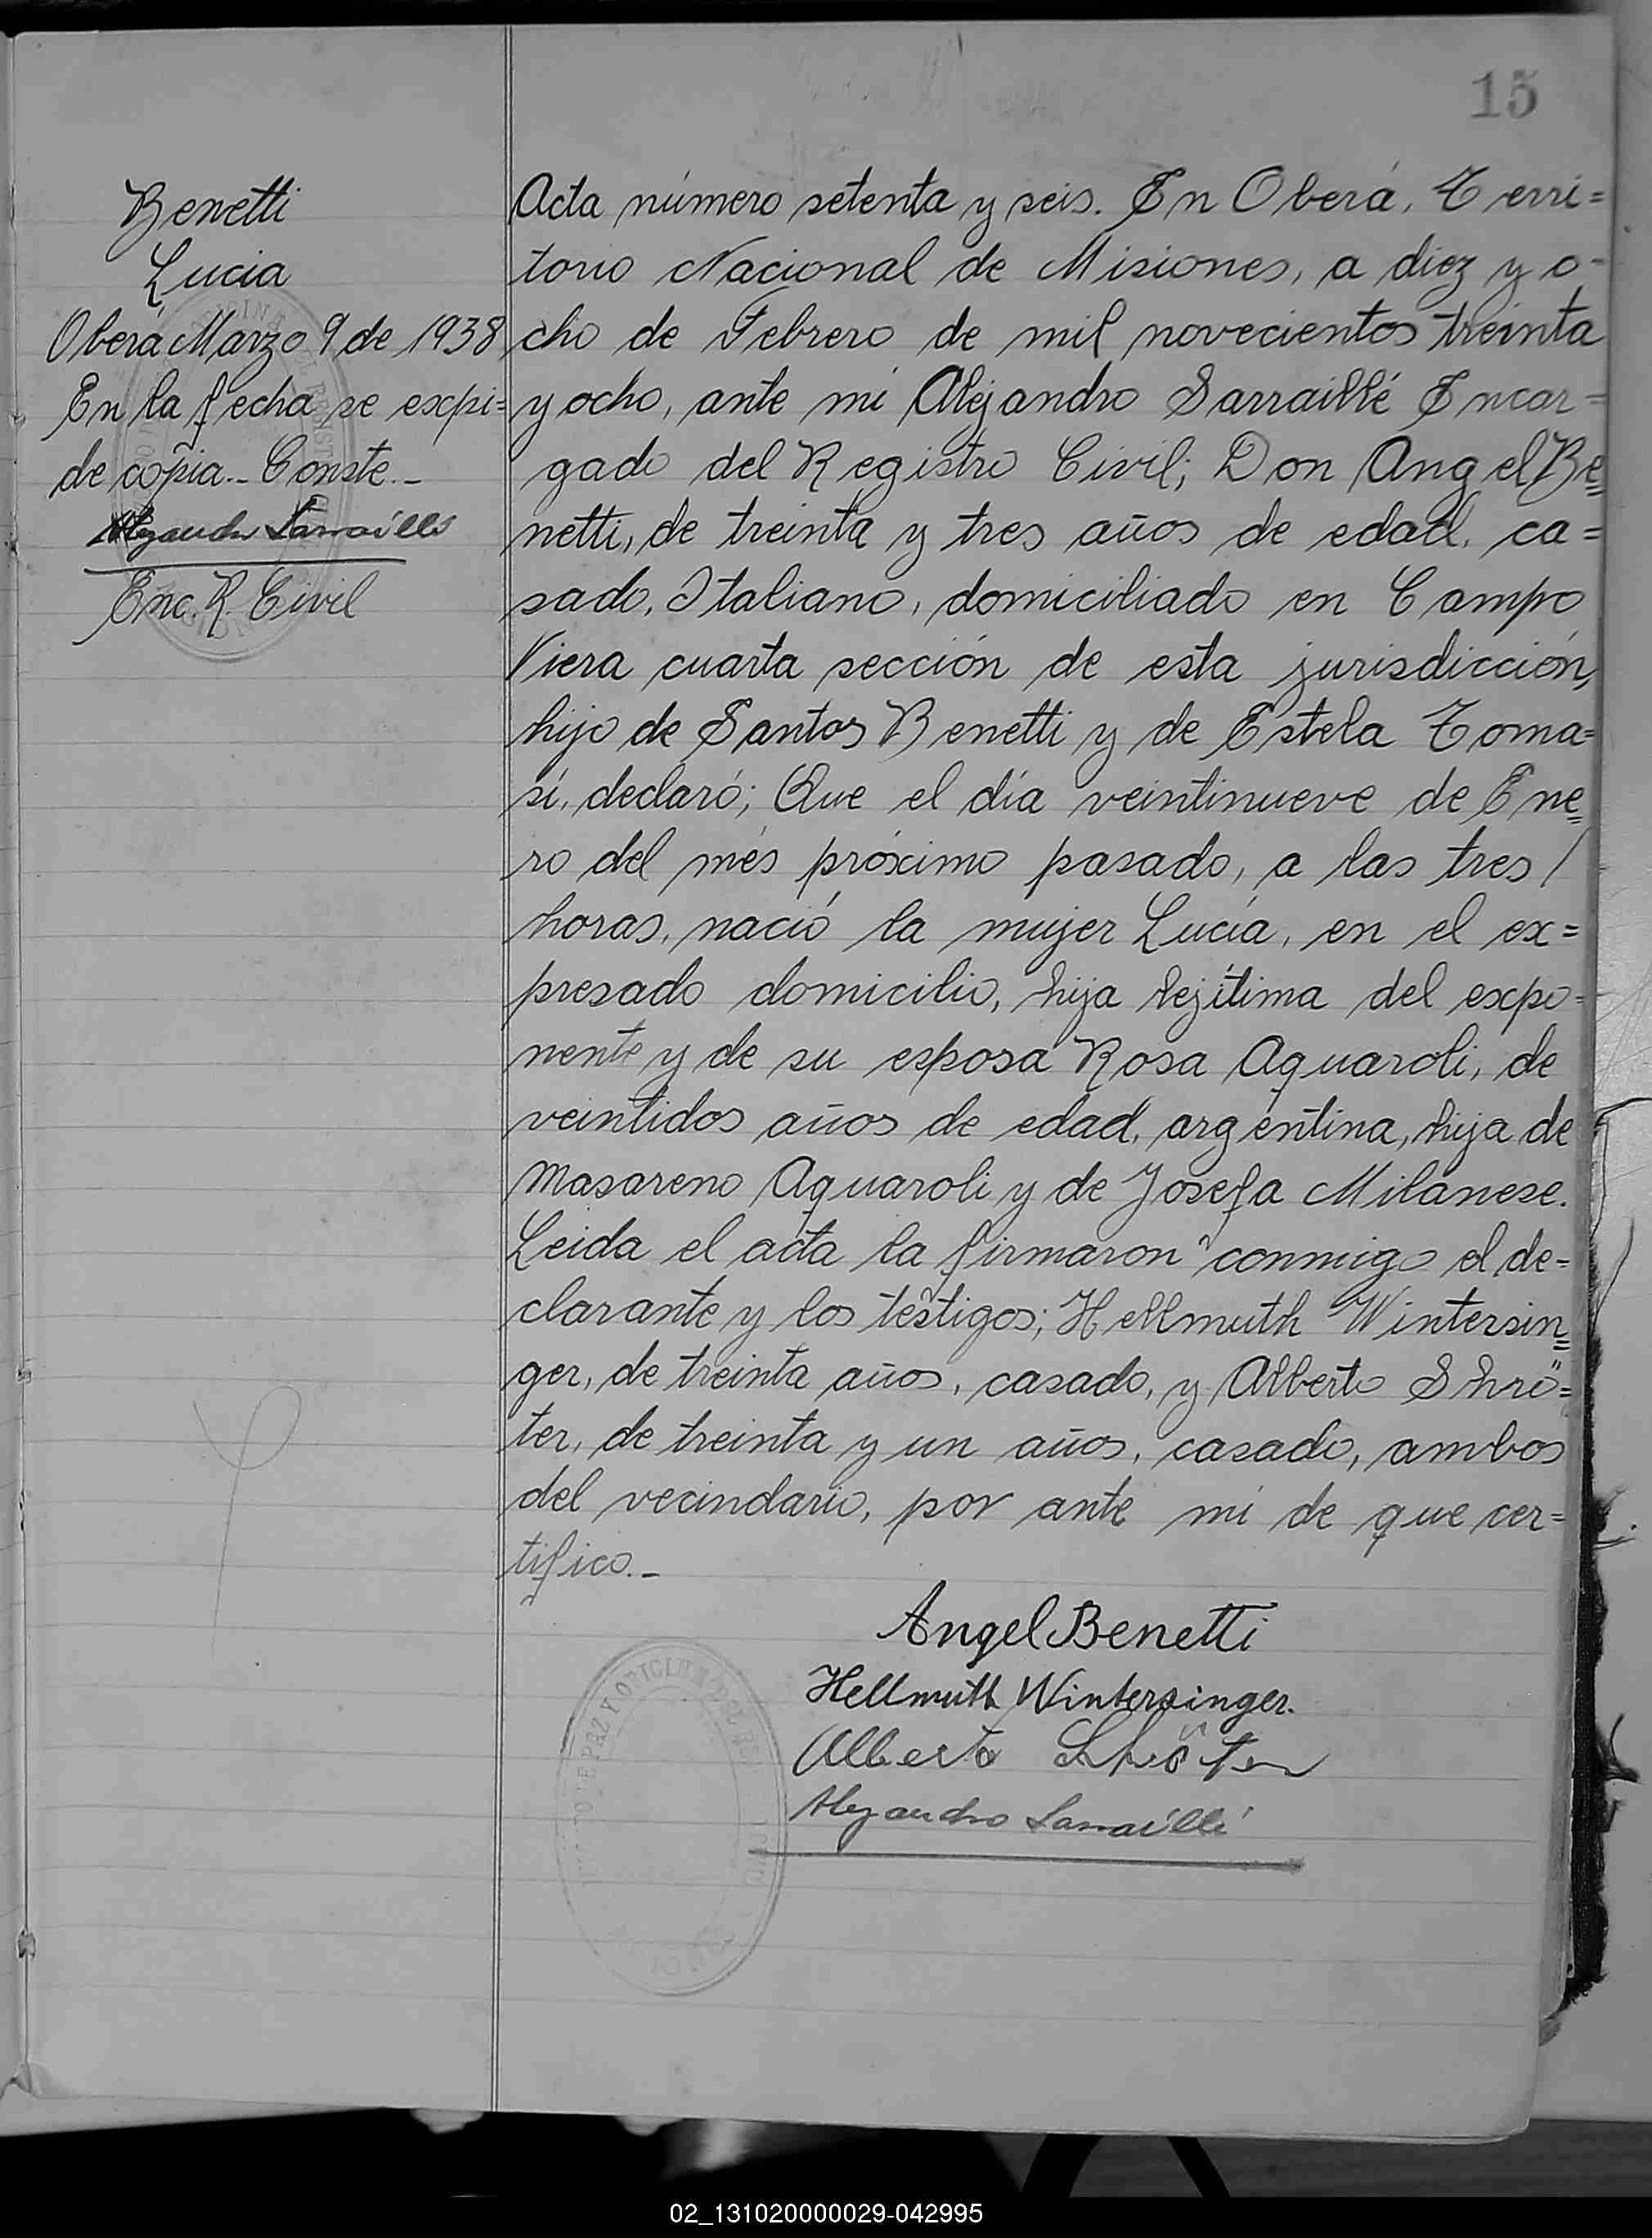 15
Benetti
Lucia
Oberá Marzo 9 de 1938
En la fecha se expi=
de copia.- Conste.-
Alejandro Sarraillé
Enc. R. Civil
Acta número setenta y seis. En Oberá, Terri=
torio Nacional de Misiones, a diez y o-
cho de Febrero de mil novecientos treinta
y ocho, ante mí Alejandro Sarraillé Encar=
gado del Registro Civil; Don Angel Be=
netti, de treinta y tres años de edad, ca=
sado, Italiano, domiciliado en Campo
Viera cuarta sección de esta jurisdicción,
hijo de Santos Benetti y de Estela Toma=
si, declaró; Que el día veintinueve de Ene=
ro del més próximo pasado, a las tres /
horas, nació la mujer Lucía, en el ex=
presado domicilio, hija lejítima del expo=
nente y de su esposa Rosa Aquaroli, de
veintidos años de edad, argentina, hija de
Masareno Aquaroli y de Josefa Milanese.
Leida el acta la firmaron conmigo el de=
clarante y los testigos; Hellmuth Wintersin=
ger, de treinta años, casado, y Alberto Shrö=
ter, de treinta y un años, casado, ambos
del vecindario, por ante mí de que cer=
tifico.-
Angel Benetti
Hellmuth Wintersinger.
Alberto Shröter
Alejandro Sarraillé
02_131020000029-042995